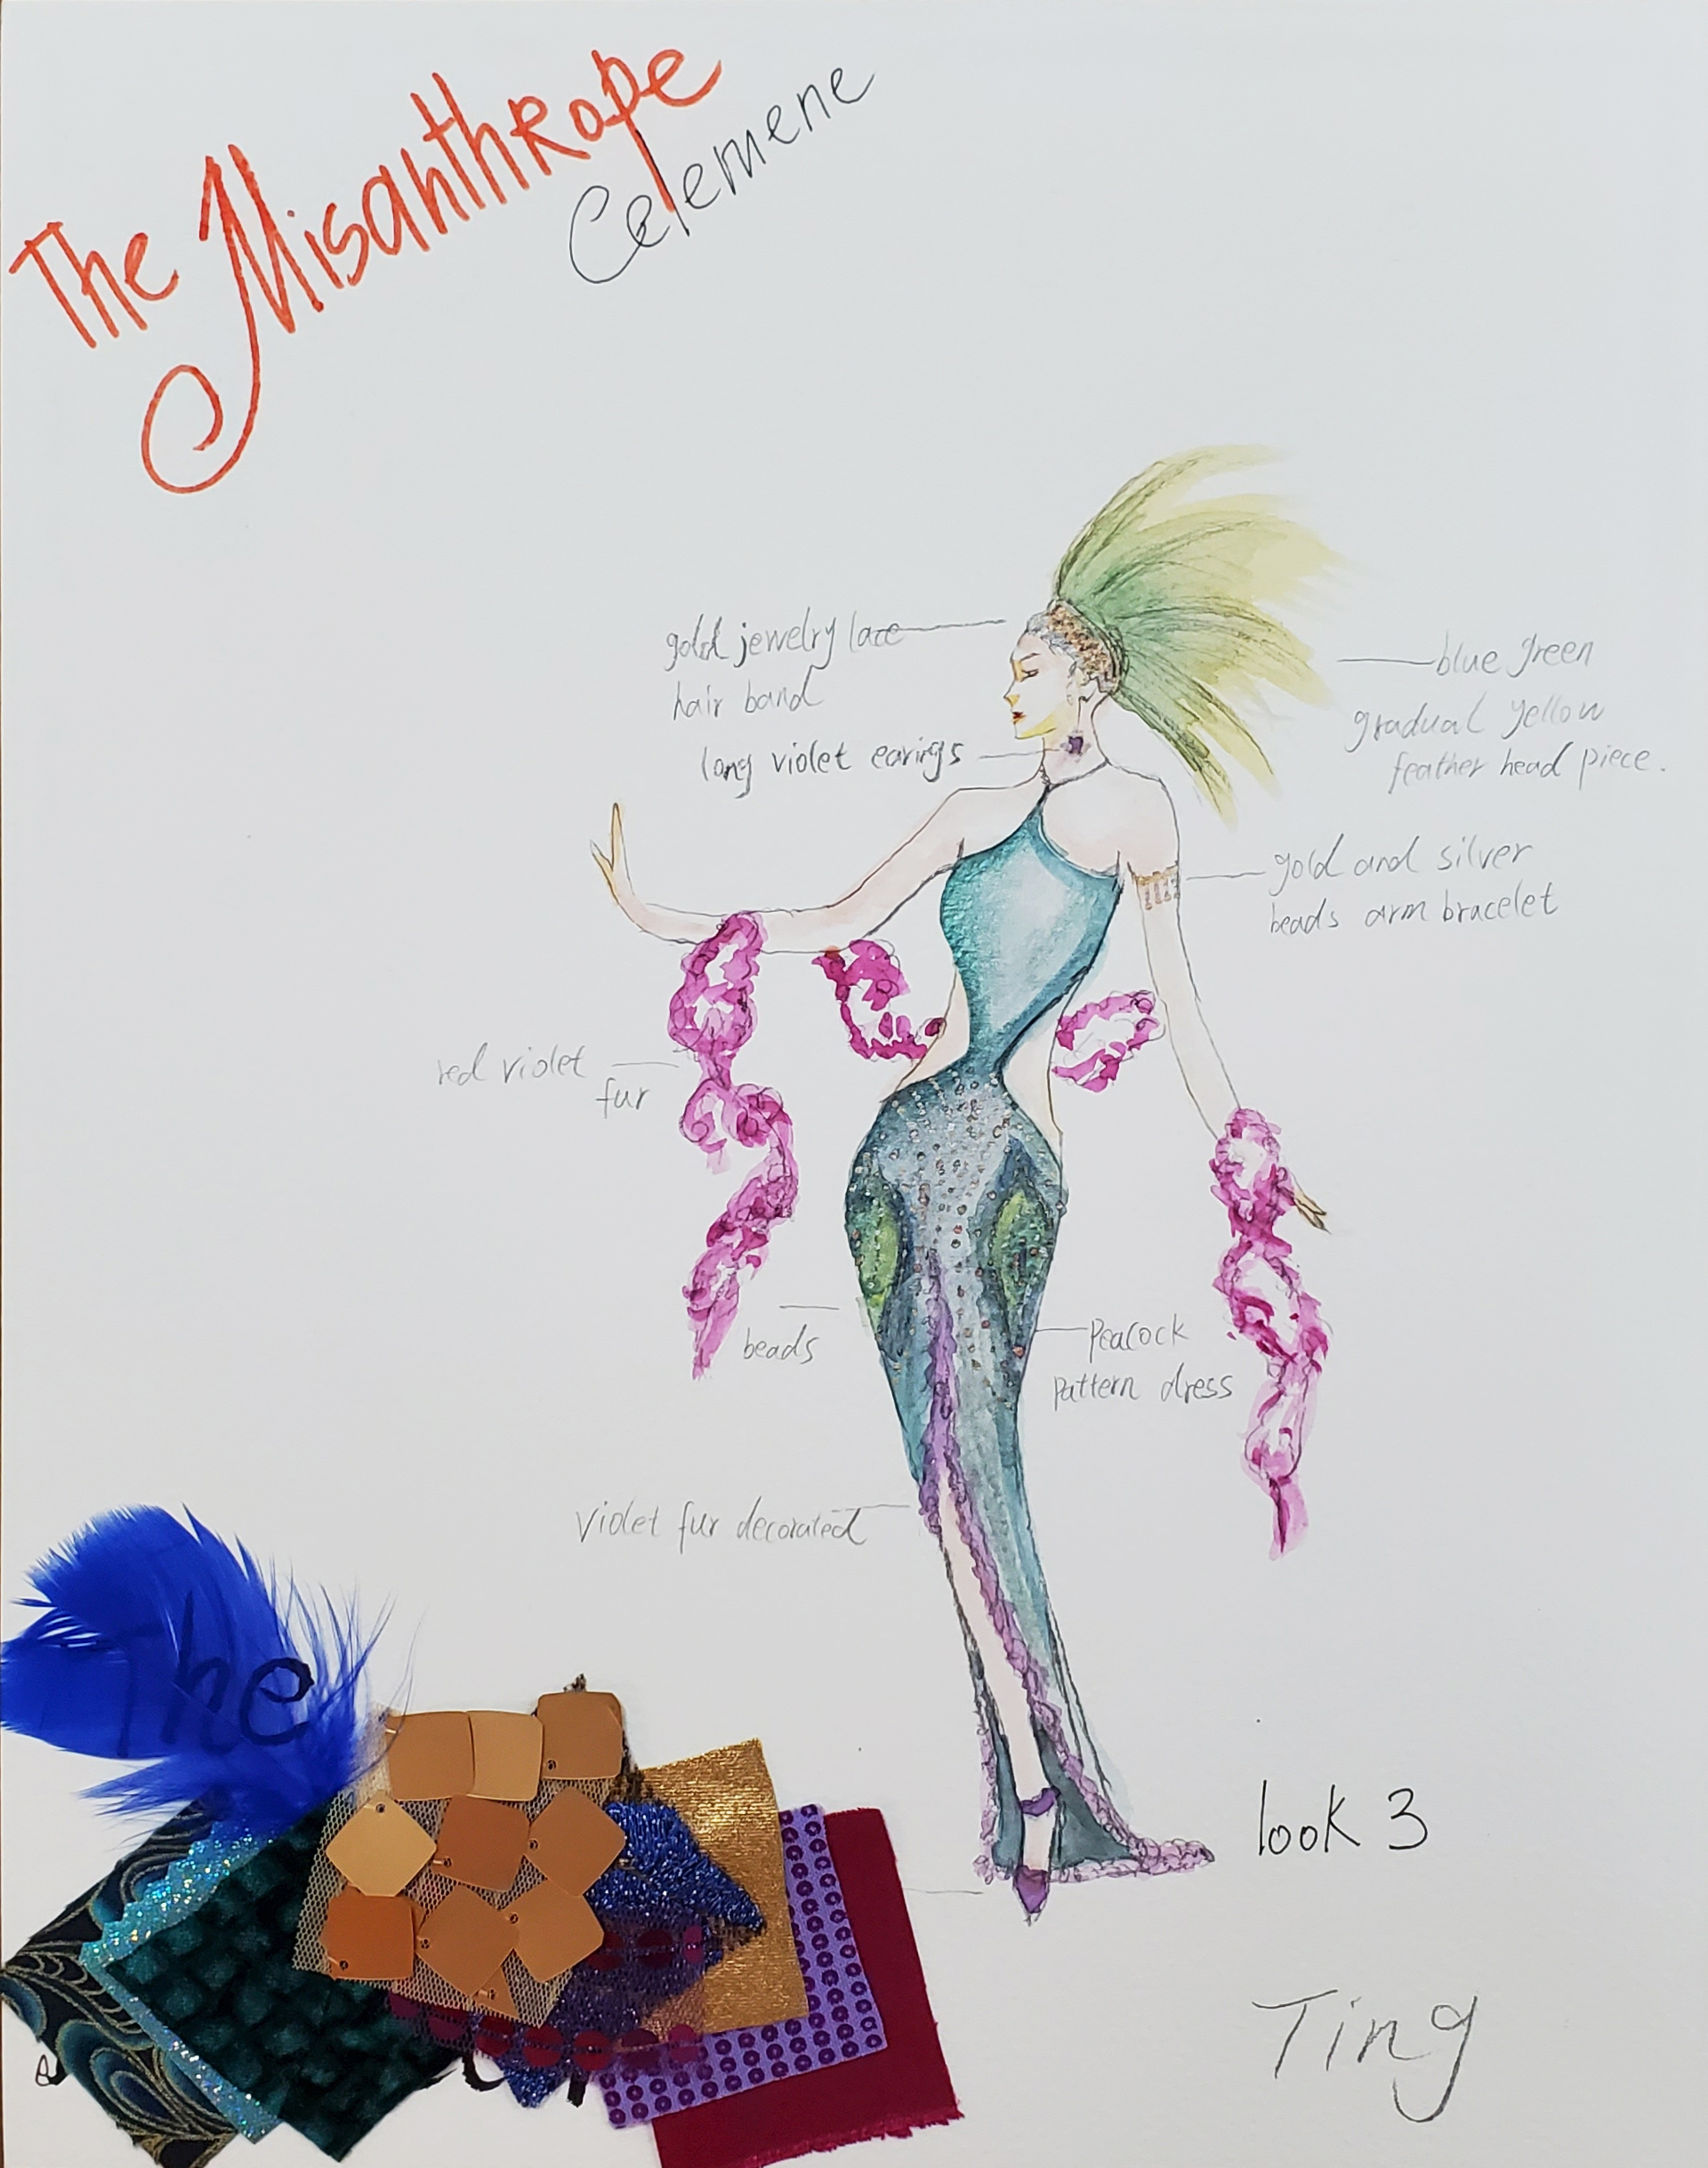 The Misanthrope
Celemene
gold jewelry lace
hair band
long violet earings
blue green
gradual yellow
feather head piece.
gold and silver
beads arm bracelet
red violet
fur
beads
Peacock
pattern dress
violet fur decorated
The
look 3
Ting